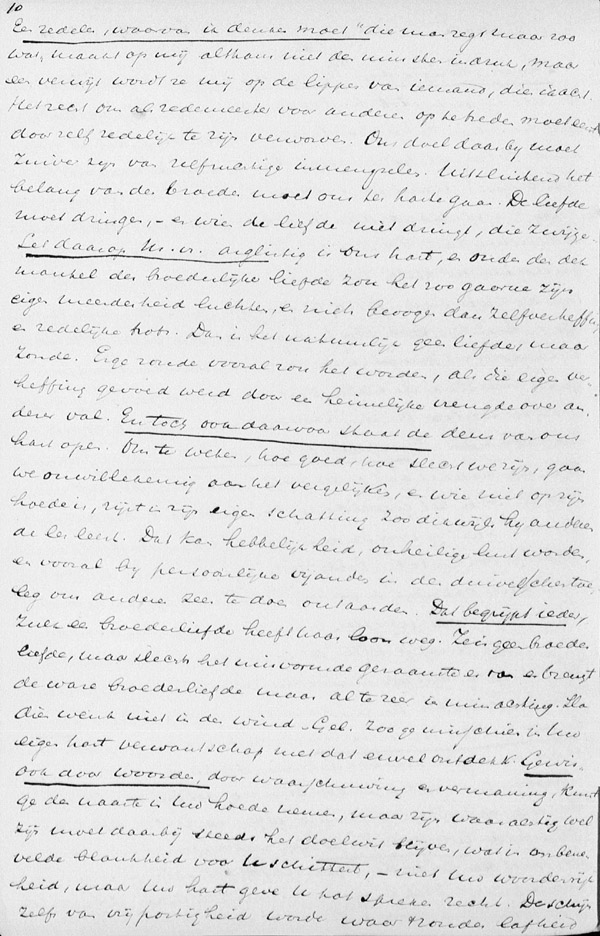 10
Een redelen, waarvan ik denken moet "die man zegt maar zoo
wat, maakt op mij althans niet den minsten indruk, maar
een verwijt wordt ze mij op de lippen van iemand, die
Het recht om als zedemeester voor anderen op te treden moet eerst
door zelf zedelijk te zijn verworven. Ons doel daarby moet
zuiver zyn van zelfzuchtige inmengselen. Uitsluitend het
belang van den broeder moet ons ter harte gaan. De liefde
moet dringen, – en wien de liefde niet dringt, die zwijge.
Let daarop M. v. arglistig is ons hart, en onder den dek
mantel der broederlijke liefde zou het zoo gaarne zijn
eigen meerderheid luchten, en niets beoogen dan zelfverheffing
en zedelijke trots. Dan is het natuurlijk geen liefde, maar
zonde. Erge zonde vooral zou het worden, als die eigen ver-
heffing gevoed werd door een heimelijke vreugde over an-
derer val. En toch ook daarvoor staat de deur van ons
hart open. Om te weten, hoe goed, hoe slecht we zijn, gaan
we onwillekeurig aan het vergelijken, en wie niet op zijn
hoede is, rijst in zijn eigen schatting zoo dikwijls hy anderen
ziet. Dat kan hebbelijkheid, onheilige lust worden,
en vooral by persoonlijke vyanden in den duivelschen toe-
leg om anderen zeer te doen ontaarden. Dat begrijpt ieder,
Zulk een broederliefde heeft haar loon weg. Ze is geen broeder
liefde, maar slechts het misvormde geraamte er van en brengt
de ware broederliefde maar al te zeer in minachting. Sla
dien wenk niet in den wind Gel. Zoo ge misschien in Uw
eigen hart verwantschap met dat euvel ontdekt. Gewis
ook door woorden, door waarschuwing en vermaning, kunt
ge den naaste in Uw hoede nemen, maar zijn waarachtig wel
zijn moet daarbij steeds het doelwit blijven, wat in
blankheid voor U schittert, – niet Uw woordenrijk
heid, maar Uw hart geve U het spreken recht. De schijn
zelfs van vrijpostigheid worde waar zonder lafheid